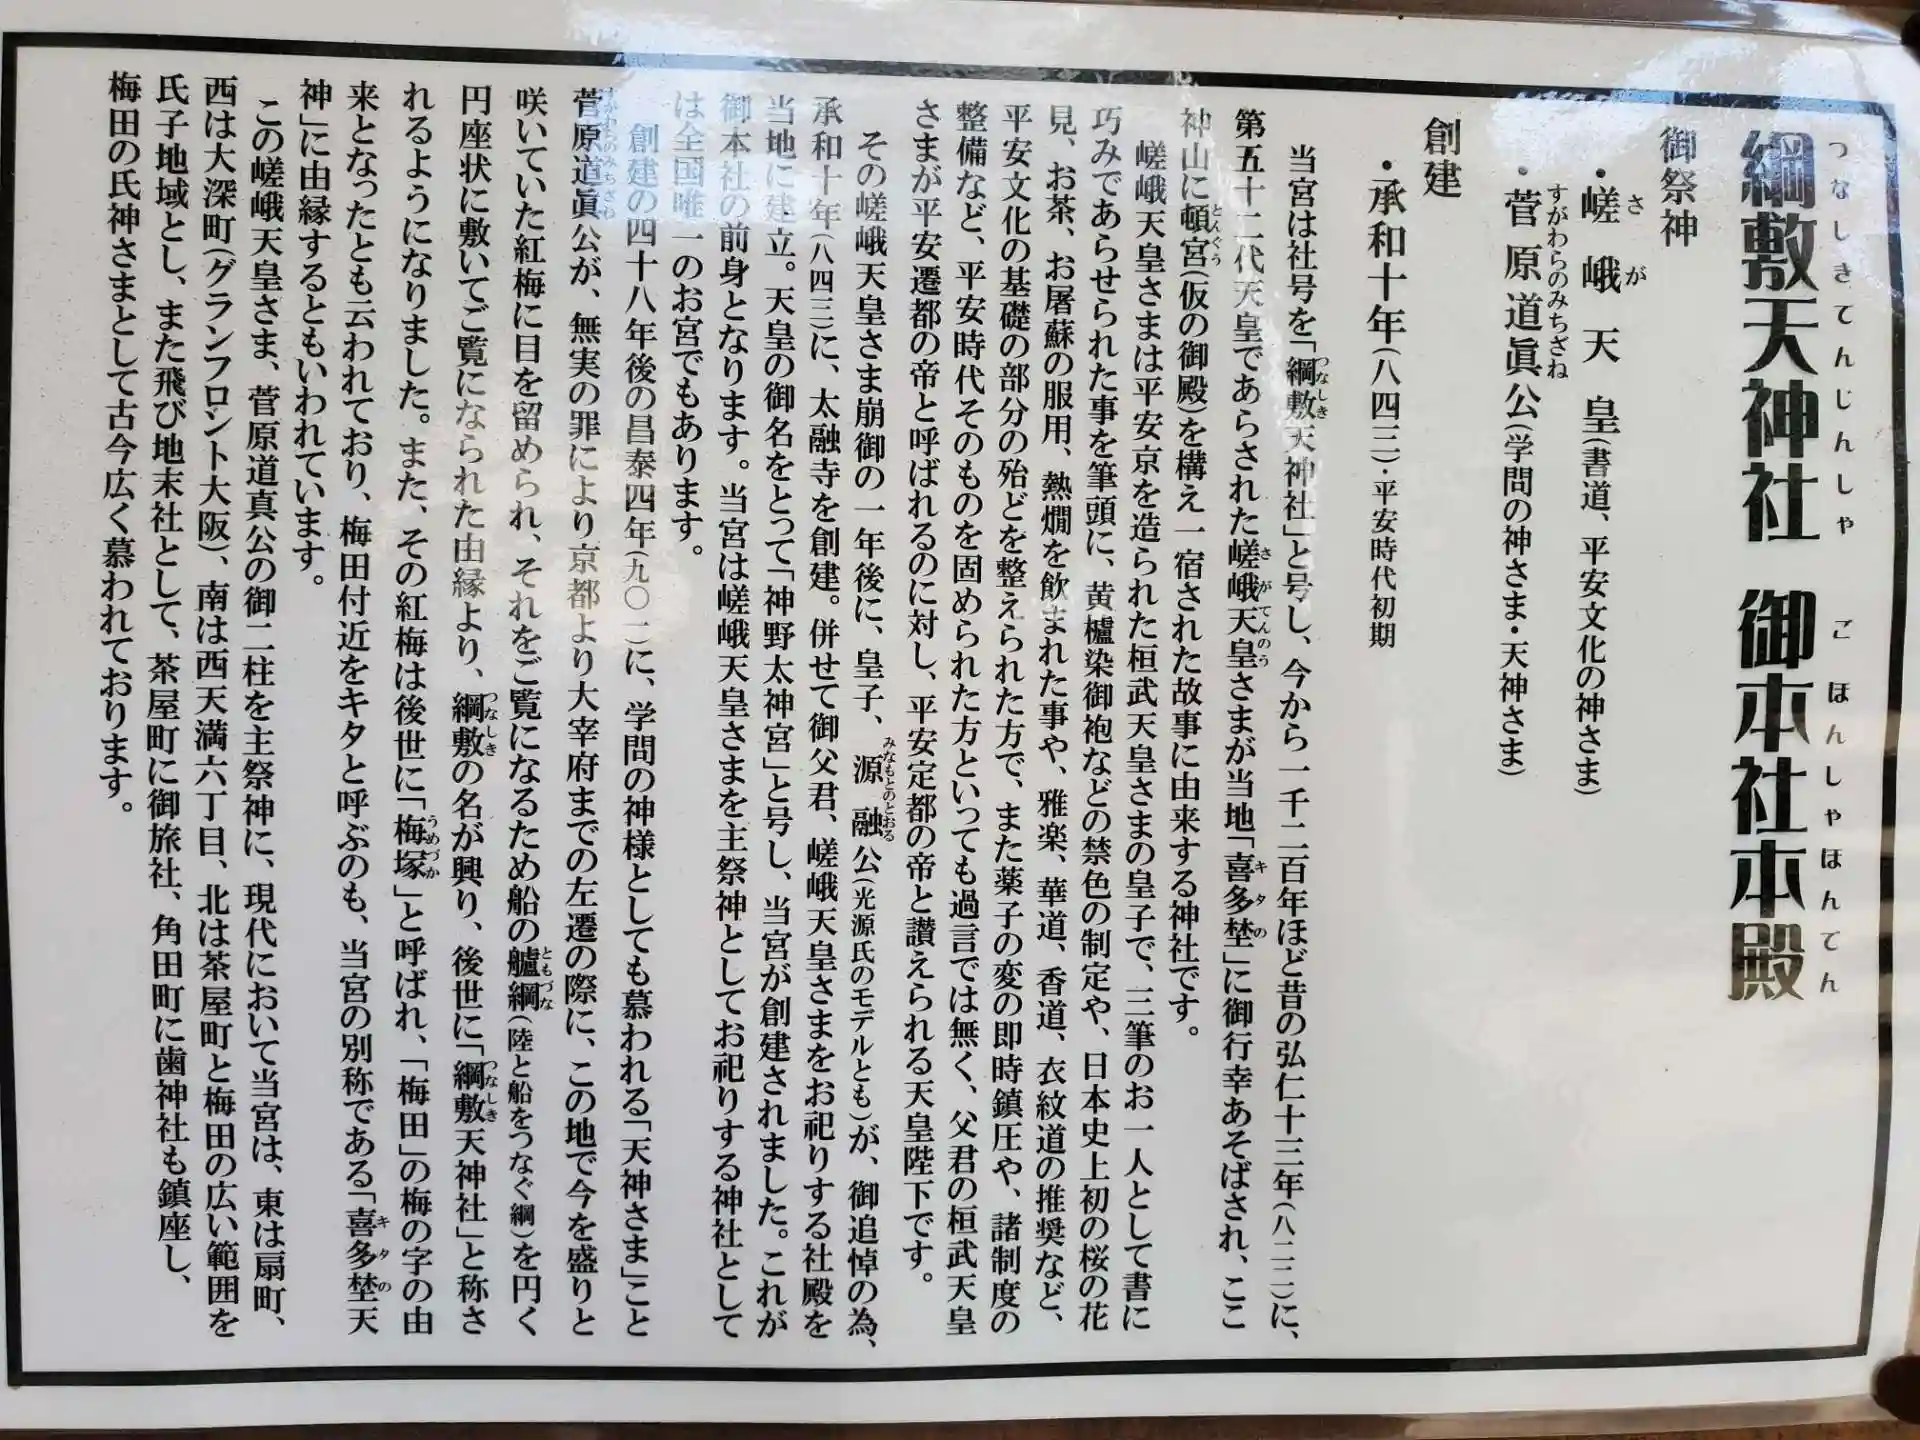 綱敷天神社 御本社本殿
つなしきてんじんしゃ ごほんしゃほんでん
御祭神
・嵯峨天皇(書道、平安文化の神さま)
さが
・菅原道眞公(学問の神さま・天神さま)
すがわらのみちざね
創建
・承和十年(八四三)・平安時代初期
当宮は社号を「綱敷天神社」と号し、今から一千二百年ほど昔の弘仁十三年(八二二)に、
つなしき
第五十二代天皇であらされた嵯峨天皇さまが当地「喜多埜」に御行幸あそばされ、ここ
さがてんのう キタの
神山に頓宮(仮の御殿)を構え一宿された故事に由来する神社です。
とんぐう
嵯峨天皇さまは平安京を造られた桓武天皇さまの皇子で、三筆のお一人として書に
巧みであらせられた事を筆頭に、黄櫨染御袍などの禁色の制定や、日本史上初の桜の花
見、お茶、お屠蘇の服用、熱燗を飲まれた事や、雅楽、華道、香道、衣紋道の推奨など、
平安文化の基礎の部分の殆どを整えられた方で、また薬子の変の即時鎮圧や、諸制度の
整備など、平安時代そのものを固められた方といっても過言では無く、父君の桓武天皇
さまが平安遷都の帝と呼ばれるのに対し、平安定都の帝と讃えられる天皇陛下です。
その嵯峨天皇さま崩御の一年後に、皇子、源融公(光源氏のモデルとも)が、御追悼の為、
みなもとのとおる
承和十年(八四三)に、太融寺を創建。併せて御父君、嵯峨天皇さまをお祀りする社殿を
当地に建立。天皇の御名をとって「神野太神宮」と号し、当宮が創建されました。これが
御本社の前身となります。当宮は嵯峨天皇さまを主祭神としてお祀りする神社として
は全国唯一のお宮でもあります。
創建の四十八年後の昌泰四年(九〇一)に、学問の神様としても慕われる「天神さま」こと
菅原道眞公が、無実の罪により京都より大宰府までの左遷の際に、この地で今を盛りと
すがわらのみちざね
咲いていた紅梅に目を留められ、それをご覧になるため船の艫綱(陸と船をつなぐ綱)を円く
ともづな
円座状に敷いてご覧になられた由縁より、綱敷の名が興り、後世に「綱敷天神社」と称さ
つなしき つなしき
れるようになりました。また、その紅梅は後世に「梅塚」と呼ばれ、「梅田」の梅の字の由
うめづか
来となったとも云われており、梅田付近をキタと呼ぶのも、当宮の別称である「喜多埜天
キタの
神」に由縁するともいわれています。
この嵯峨天皇さま、菅原道真公の御二柱を主祭神に、現代において当宮は、東は扇町、
西は大深町(グランフロント大阪)、南は西天満六丁目、北は茶屋町と梅田の広い範囲を
氏子地域とし、また飛び地末社として、茶屋町に御旅社、角田町に歯神社も鎮座し、
梅田の氏神さまとして古今広く慕われております。